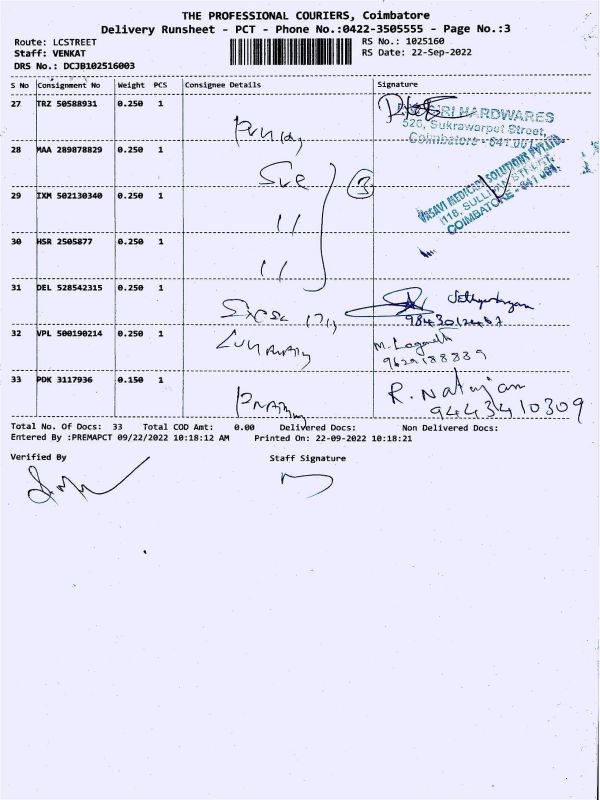 THE PROFESSIONAL COURIERS, Coimbatore
Delivery Runsheet - PCT - Phone No.:0422-3505555 - Page No.:3
Route: LCSTREET
Staff: VENKAT
DRS No.: DCJB102516003
RS No.: 1025160
RS Date: 22-Sep-2022
S No Consignment No Weight PCS Consignee Details Signature
27 TRZ 50588931 0.250 1
SRI HARDWARES
526, Sukrawarpet Street,
Coimbatore - 641 001
28 MAA 289878829 0.250 1
VASAVI MEDICAL SOLUTIONS PVT LTD
COIMBATORE - 641 001.
29 IXM 502130340 0.250 1
3
30 HSR 2505877 0.250 1
31 DEL 528542315 0.250 1
32 VPL 500190214 0.250 1
M. Loganath
9629188839
33 PDK 3117936 0.150 1
R. Natajan
9443410309
Total No. Of Docs: 33 Total COD Amt: 0.00 Delivered Docs: Non Delivered Docs:
Entered By :PREMAPCT 09/22/2022 10:18:12 AM Printed On: 22-09-2022 10:18:21
Verified By Staff Signature